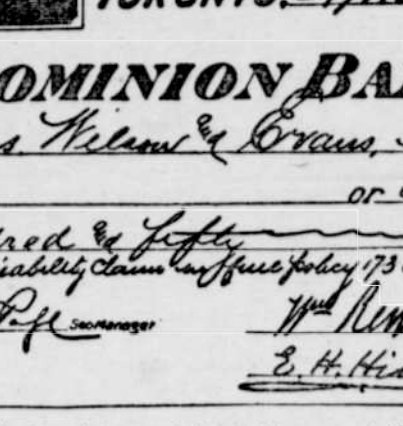 TORONTO.
OMINION BA
s. Wilson & Evans,
or
red & fifty
iability claim in full policy 173
Page Sec Manager
Wm Rem
E. H. Hi